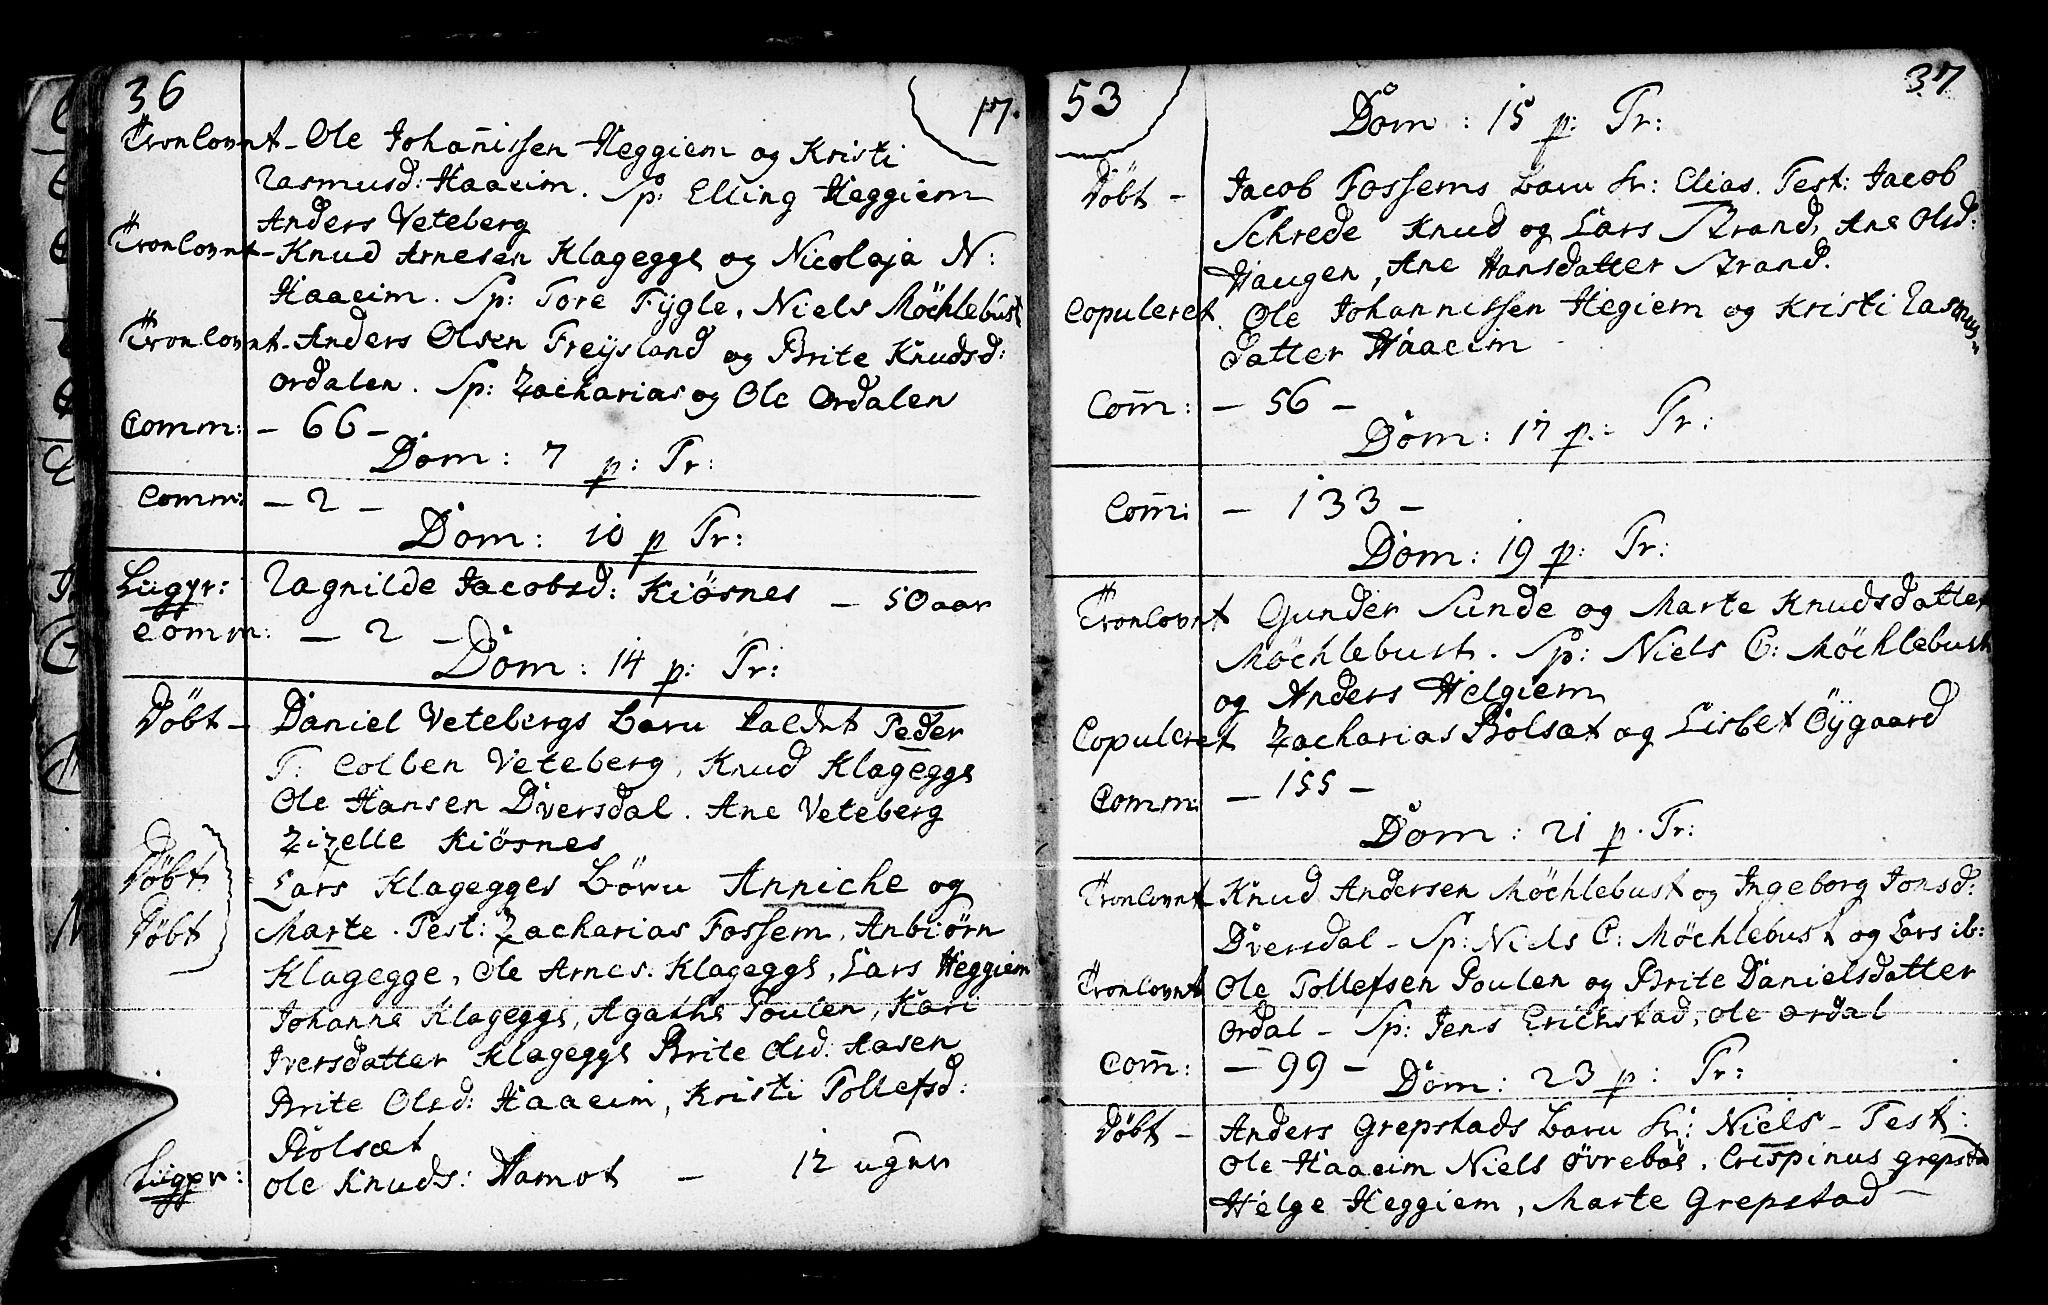 36
17.
Tronlovnt - Ole Johañissen Heggiem og Kristi
Rasmusd: Haaeim. Sp: Elling Heggiem
Anders Veteberg
Tronlovnt - Knud Arnesen Klagegge og Nicolaja N:
Haaeim. Sp: Tore Fygle, Niels Möchlebust
Tronlovnt - Anders Olsen Freysland og Brite Knudsd:
Ordalen. Sp: Zacharias og Ole Ordalen
Comm: - 66 -
Dom: 7 p: Tr:
Comm: - 2 -
Dom: 10 p Tr:
Liigpr: Ragnilde Jacobsd: Kiösnes - 50 aar
Comm: - 2 -
Dom: 14 p: Tr:
Döbt - Daniel Vetebergs Barn kaldet Peder
T: Colben Veteberg, Knud Klagegge
Ole Hansen Dversdal. Ane Veteberg
Zizelle Kiösnes
Döbt Lars Klagegges Börn Anniche og
Döbt Marte. Test: Zacharias Fossem, Anbiörn
Klagegge, Ole Arnes. Klagegge, Lars Heggiem
Johanne Klagegge, Agathe Poulen, Kari
Iversdatter Klagegge Brite Olsd: Aasen
Brite Olsd: Haaeim, Kristi Tollefsd:
Bolsæt
Liigpr: Ole Knuds: Hamot - 12 uger
53
37
Dom: 15 p: Tr:
Döbt - Jacob Fossems Barn kr: Elias. Test: Jacob
Schrede Knud og Lars Strand, Ane Olsd:
Haugen, Ane Hansdatter Strand.
Copuleret. Ole Johannissen Hegiem og Kristi Rasmus-
datter Haaeim -
Com̄: - 56 -
Dom: 17 p: Tr:
Com̄: - 133 -
Dom: 19 p: Tr:
Tronlovnt Gunder Sunde og Marte Knudsdatter
Möchlebust. Sp: Niels C: Möchlebust
og Anders Helgiem
Copuleret Zacharias Bolsæt og Lisbet Öygaard
Comm: - 155 -
Dom: 21 p. Tr:
Tronlovnt Knud Andersen Möchlebust og Ingeborg Jonsd:
Dversdal - Sp: Niels C: Möchlebust og Lars ib:
Tronlovnt Ole Tollefsen Poulen og Brite Danielsdatter
Ordal - Sp: Jens Erichstad, Ole Ordal
Com̄: - 99 -
Dom: 23 p: Tr:
Döbt - Anders Grepstads Barn kr: Niels - Test:
Ole Haaeim Niels Övreböe, Crispinus grepstad
Helge Heggiem, Marte Grepstad -